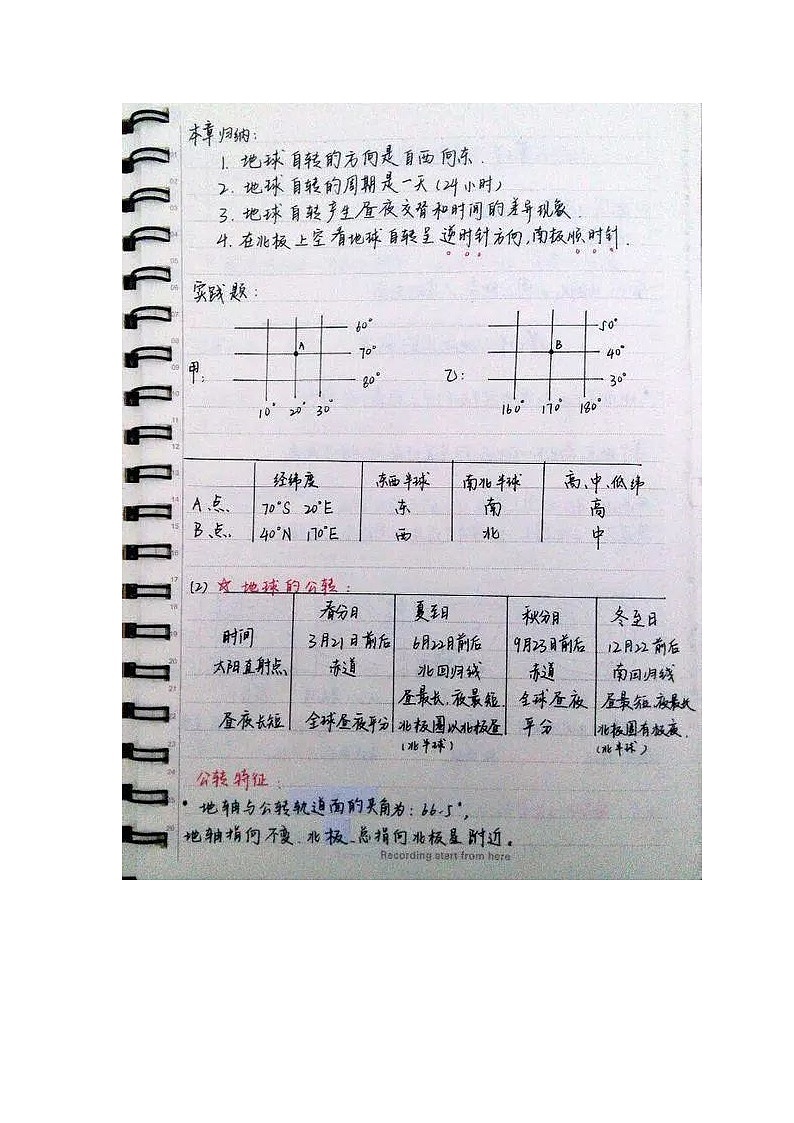 本章归纳:
1. 地球自转的方向是自西向东.
2. 地球自转的周期是一天(24小时)
3. 地球自转产生昼夜交替和时间的差异现象.
4. 在北极上空看地球自转呈逆时针方向,南极顺时针.
实践题:
甲:
60°
A
70°
80°
10° 20° 30°
乙:
50°
B
40°
30°
160° 170° 180°
经纬度 东西半球 南北半球 高、中、低纬
A点 70°S 20°E 东 南 高
B点 40°N 170°E 西 北 中
(2) ☆地球的公转:
春分日 夏至日 秋分日 冬至日
时间 3月21日前后 6月22日前后 9月23日前后 12月22前后
太阳直射点 赤道 北回归线 赤道 南回归线
昼最长,夜最短 全球昼夜 昼最短,夜最长
昼夜长短 全球昼夜平分 北极圈以北极昼 平分 北极圈有极夜.
(北半球) (北半球)
公转特征:
• 地轴与公转轨道面的夹角为:66.5°,
地轴指向不变.北极总指向北极星附近。
Recording start from here